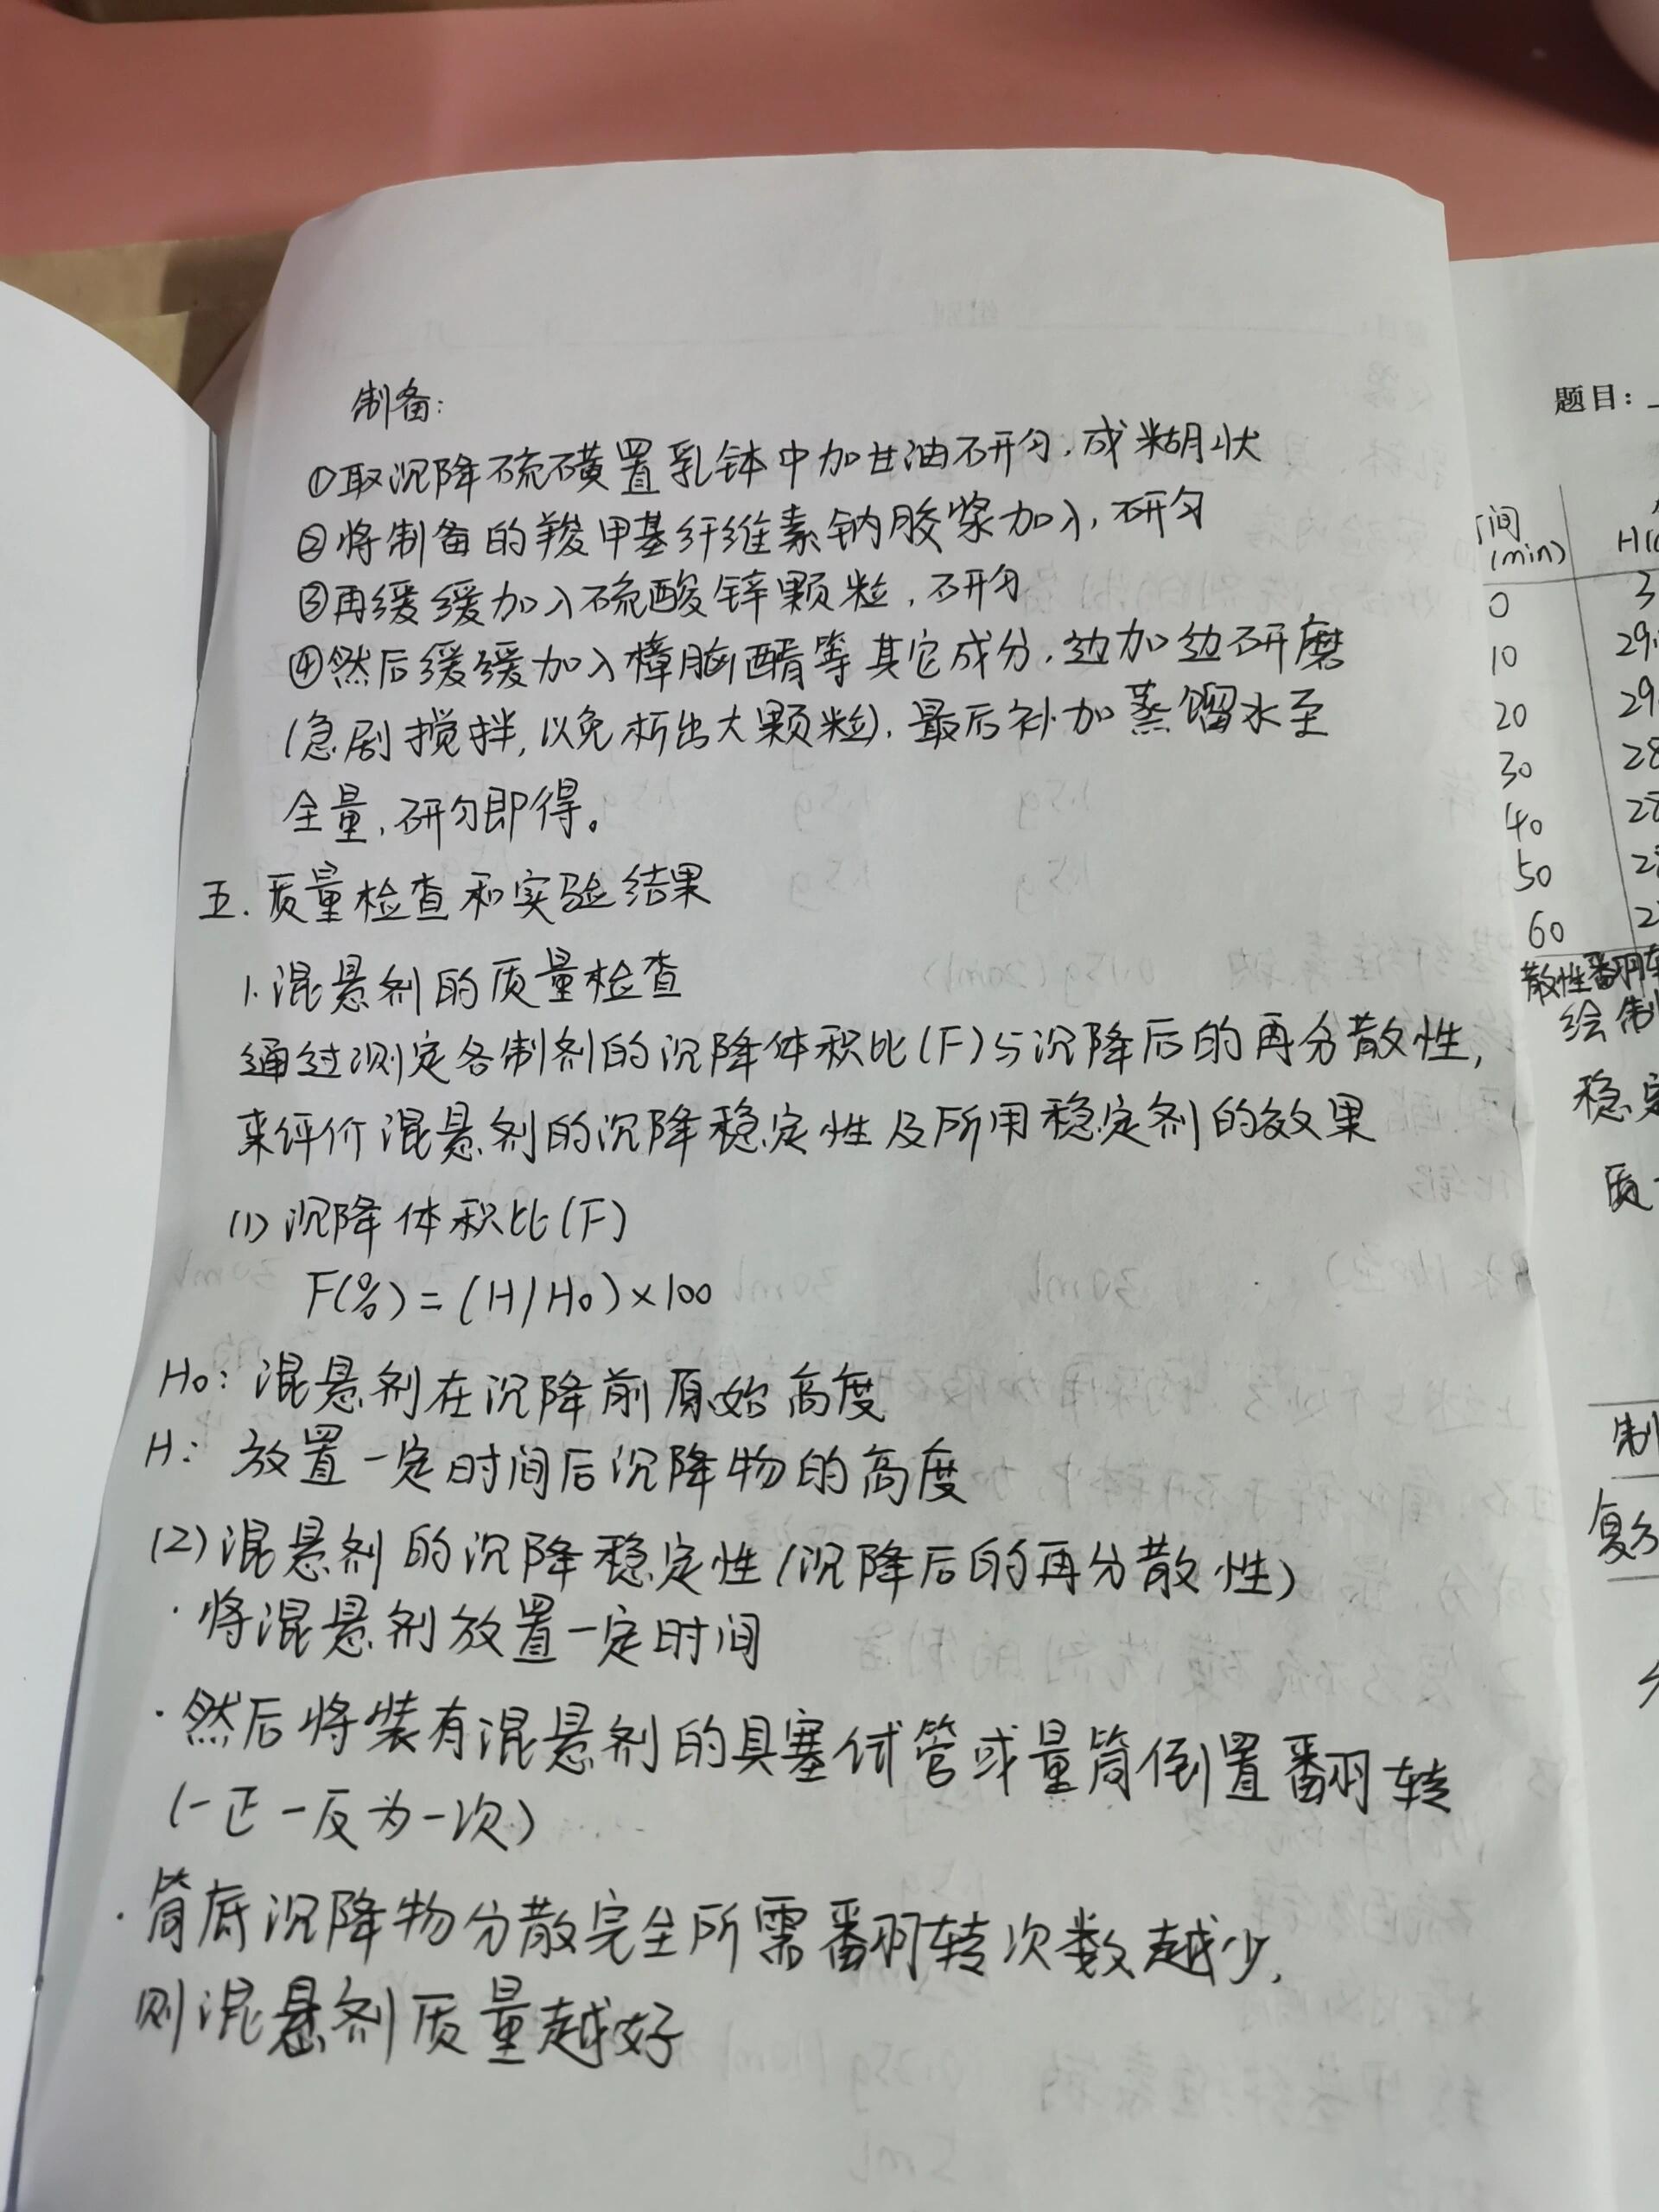 制备:
①取沉降硫磺置乳钵中加甘油研匀,成糊状
②将制备的羧甲基纤维素钠胶浆加入,研匀
③再缓缓加入硫酸锌颗粒,研匀
④然后缓缓加入樟脑醑等其它成分,边加边研磨
(急剧搅拌,以免析出大颗粒),最后补加蒸馏水至
全量,研匀即得。
五.质量检查和实验结果
1.混悬剂的质量检查
通过测定各制剂的沉降体积比(F)与沉降后的再分散性,
来评价混悬剂的沉降稳定性及所用稳定剂的效果
(1)沉降体积比(F)
F(%)=(H/H₀)×100
H₀:混悬剂在沉降前原始高度
H:放置一定时间后沉降物的高度
(2)混悬剂的沉降稳定性(沉降后的再分散性)
·将混悬剂放置一定时间
·然后将装有混悬剂的具塞试管或量筒倒置翻转
(一正一反为一次)
·筒底沉降物分散完全所需翻转次数越少,
则混悬剂质量越好
题目:
间
(min)
0
10
20
30
40
50
60
散性翻转
绘制
稳定
质
制
复方